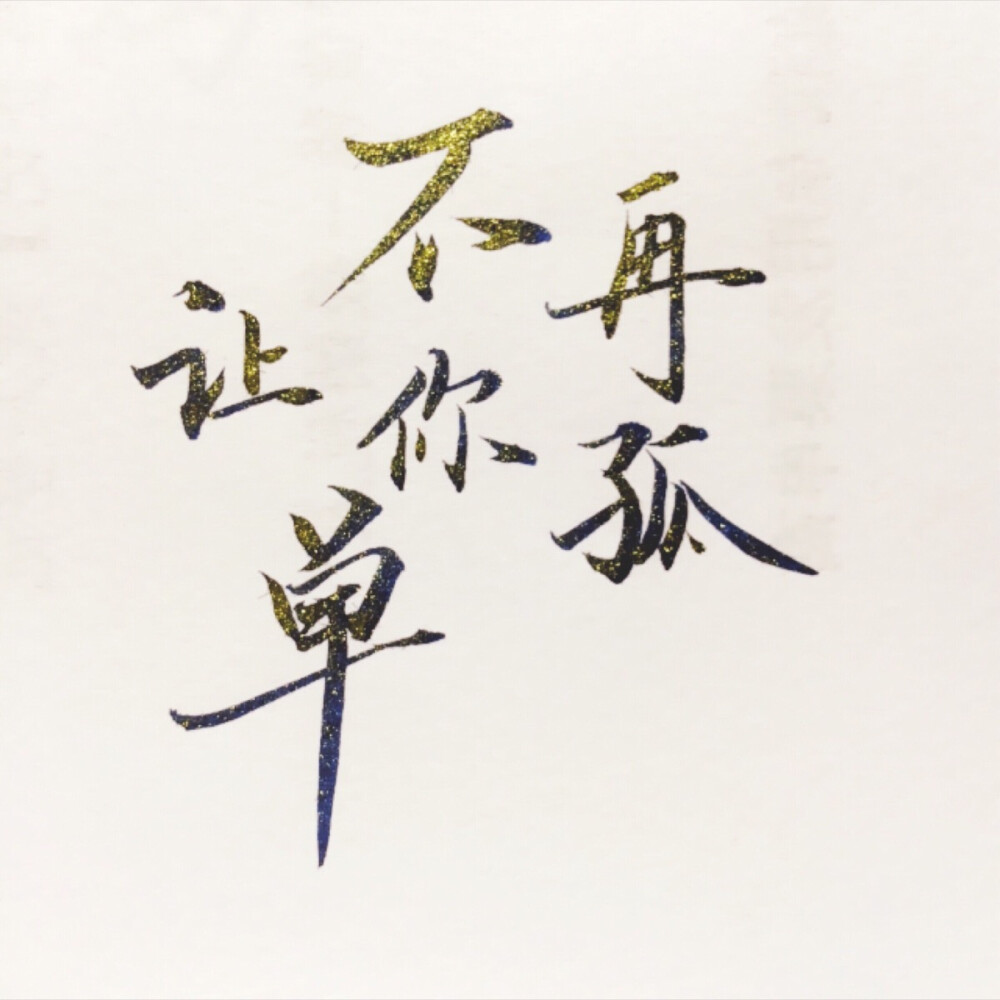 不再
让你
孤单